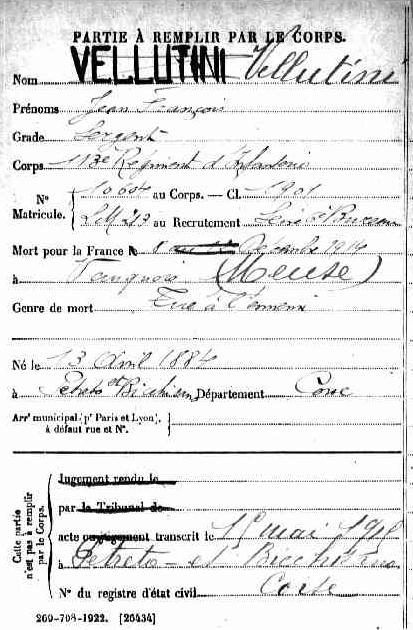 PARTIE À REMPLIR PAR LE CORPS.
VELLUTINI
Nom Vellutini
Prénoms Jean François
Grade Sergent
Corps 113e Régiment d'Infanterie
N° Matricule. { 10604 au Corps. — Cl. 1901
LM 213 au Recrutement Seine Bureau
Mort pour la France le Décembre 1914
à Vauquois (Meuse)
Genre de mort Tué à l'ennemi
Né le 13 Avril 1884
à Petreto et Bicchisano Département Corse
Arr' municipal (p' Paris et Lyon),
à défaut rue et N°.
Cette partie n'est pas à remplir par le Corps.
Jugement rendu le
par le Tribunal de
acte ou jugement transcrit le 15 mai
à Petreto - et Bicchisano
Corse
N° du registre d'état civil
269-708-1922. [26434]